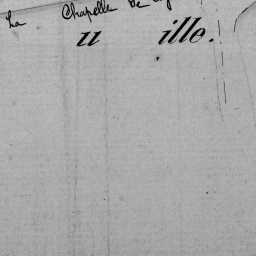 La Chapelle de
u ille.